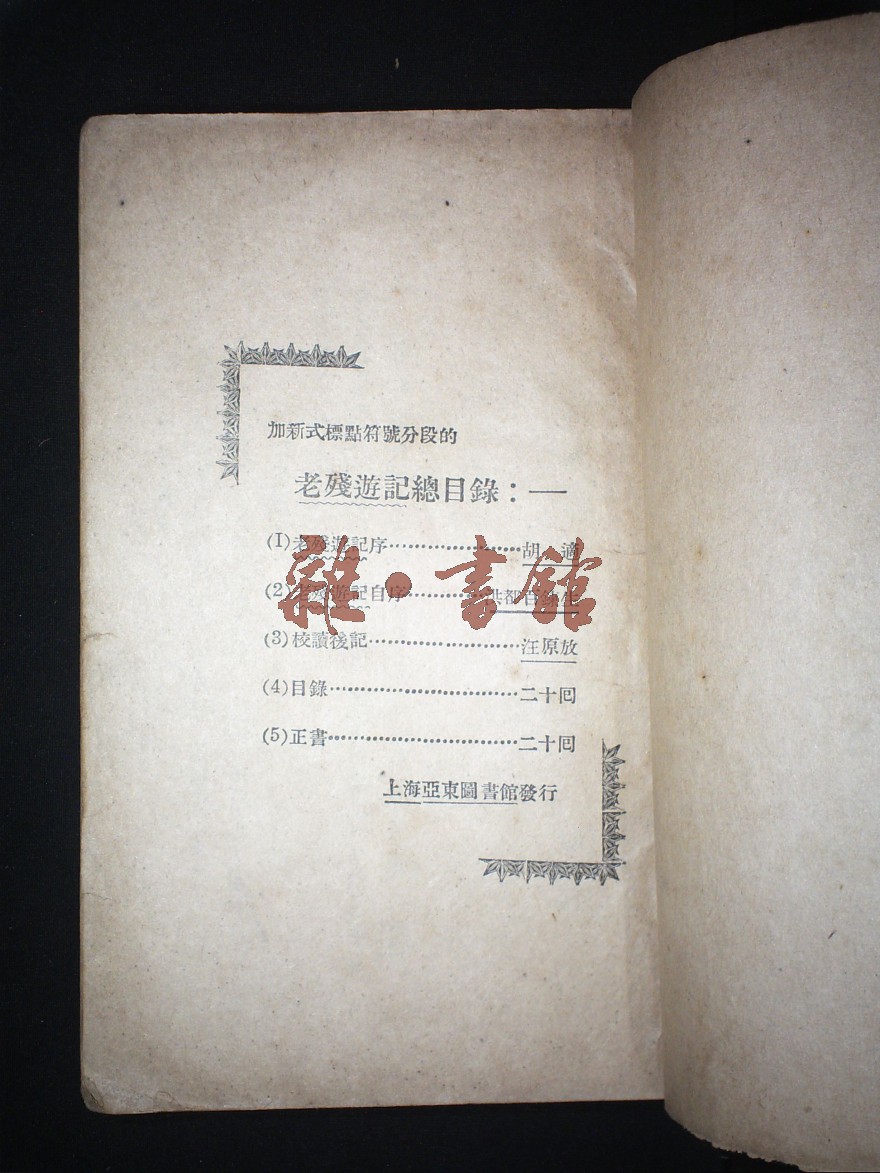 加新式標點符號分段的
老殘遊記總目錄：—
(1)老殘遊記序……………………胡　適
(2)老殘遊記自序…………洪都百鍊生
(3)校讀後記……………………汪原放
(4)目錄……………………二十囘
(5)正書……………………二十囘
上海亞東圖書館發行
雜·書館